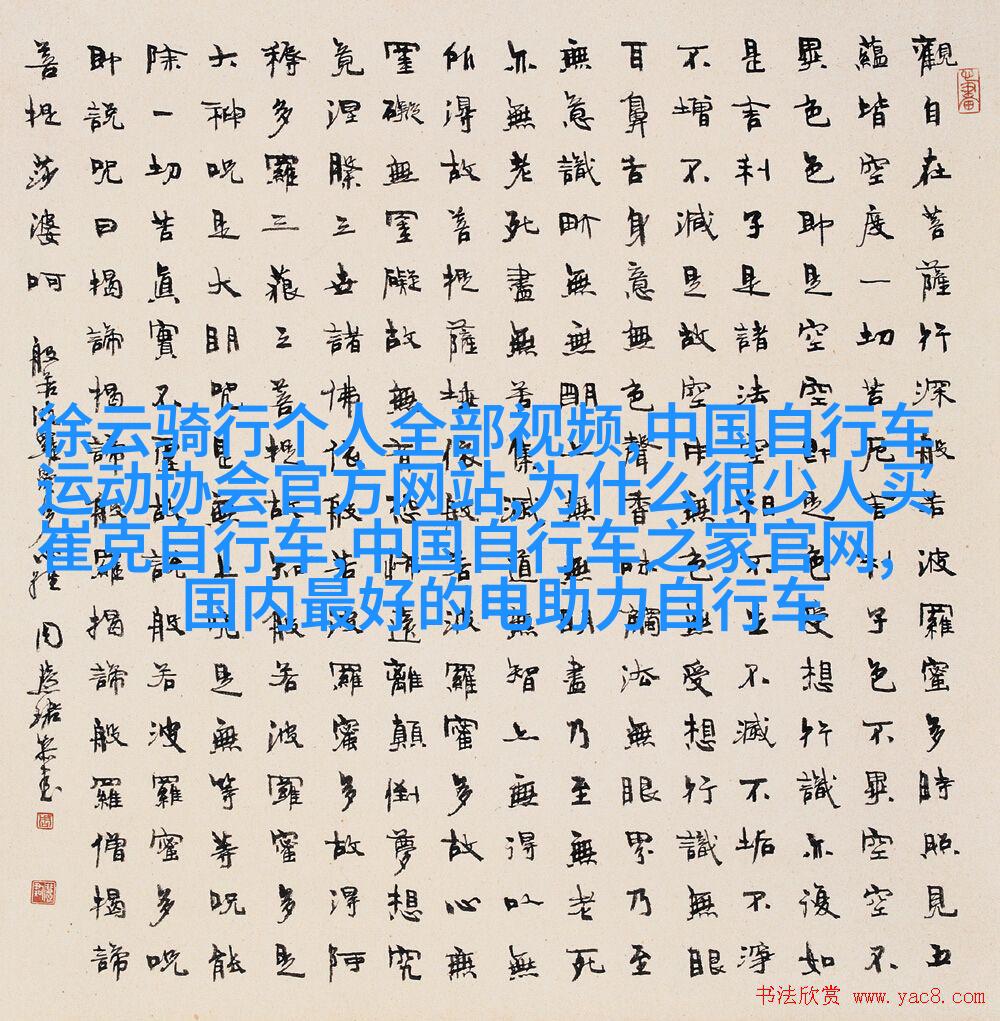 觀自在菩薩行深般若波羅蜜多時照見五
蘊皆空度一切苦厄舍利子色不異空空不
異色色即是空空即是色受想行識亦復如
是舍利子是諸法空相不生不滅不垢不淨
不增不減是故空中無色無受想行識無眼
耳鼻舌身意無色聲香味觸法無眼界乃至
無意識界無無明亦無無明盡乃至無老死
亦無老死盡無苦集滅道無智亦無得以無
所得故菩提薩埵依般若波羅蜜多故心無
罣礙無罣礙故無有恐怖遠離顛倒夢想究
竟涅槃三世諸佛依般若波羅蜜多故得阿
耨多羅三藐三菩提故知般若波羅蜜多是
大神咒是大明咒是無上咒是無等等咒能
除一切苦真實不虛故說般若波羅蜜多咒
即說咒曰揭諦揭諦般羅揭諦般羅僧揭諦
菩提莎婆呵
般若波羅蜜多心經 周慧珺恭書
徐云骑行个人全部视频,中国自行车
运动协会官方网站,为什么很少人买
崔克自行车,中国自行车之家官网,
国内最好的电助力自行车
书法欣赏 www.yac8.com